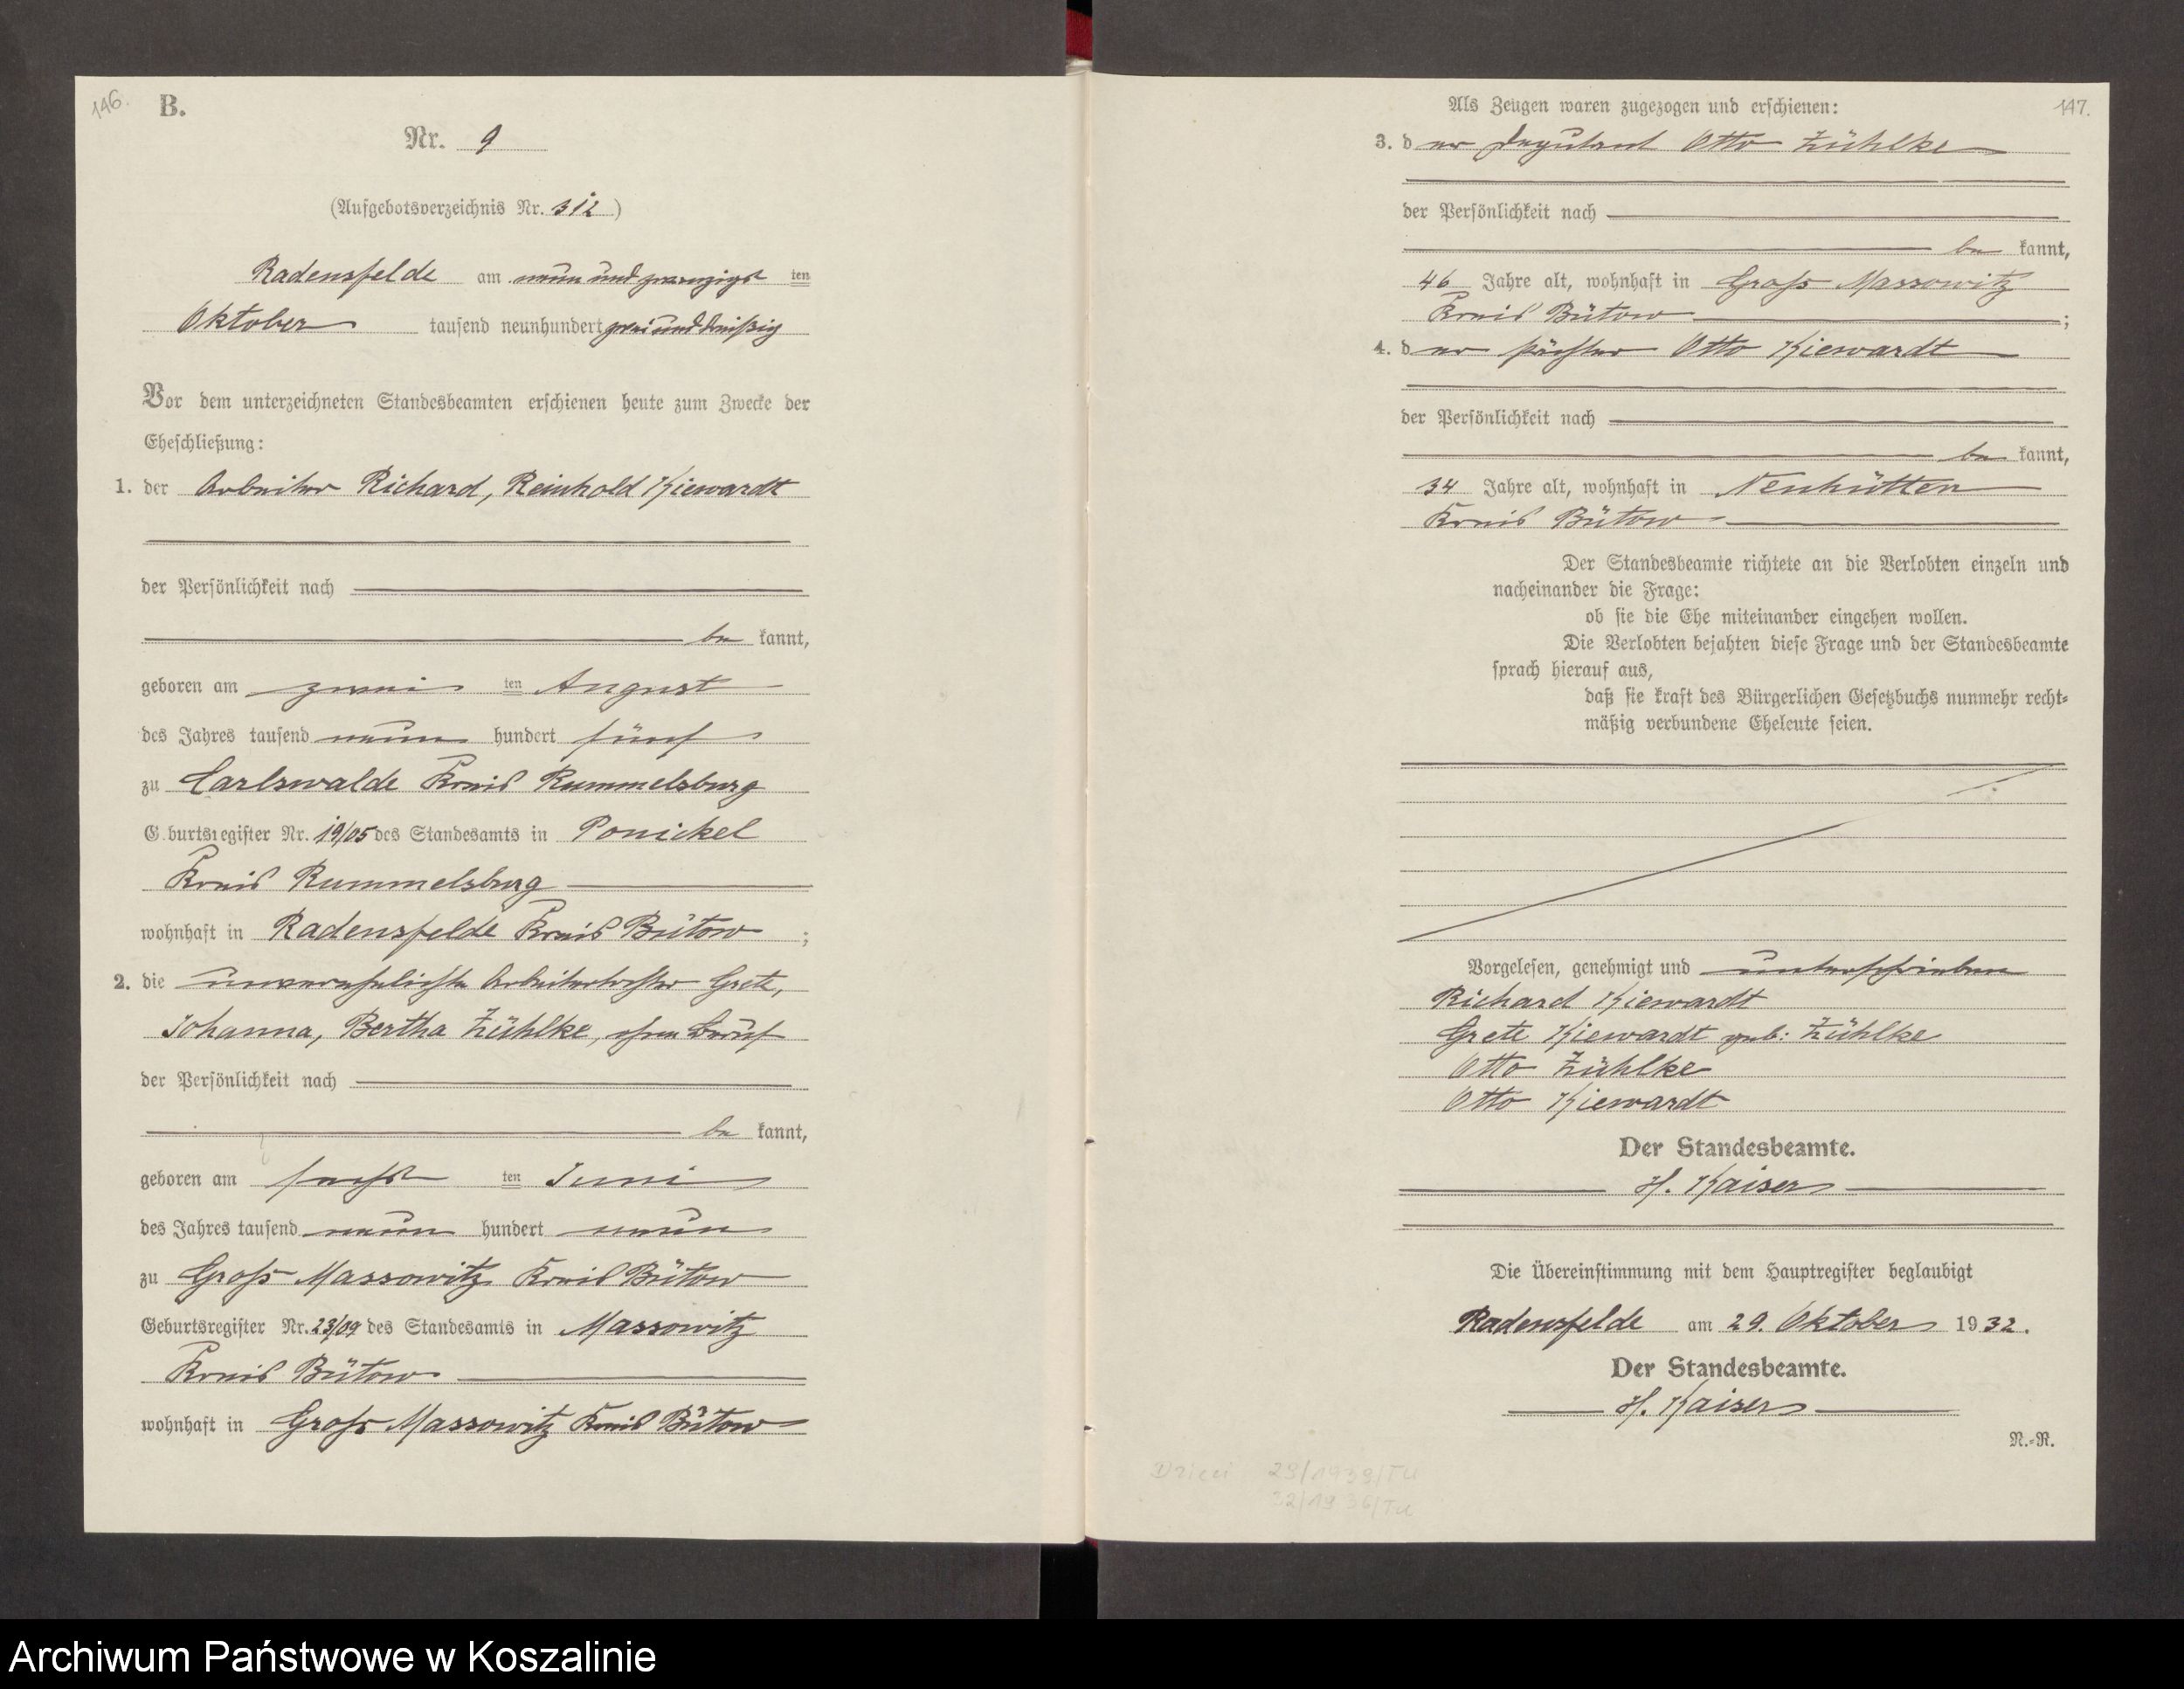 146.
B.
Nr. 9
(Aufgebotsverzeichnis Nr. 312)
Radensfelde am neun und zwanzigst ten
Oktober tausend neunhundert zwei und dreißig
Vor dem unterzeichneten Standesbeamten erschienen heute zum Zwecke der
Eheschließung:
1. der Arbeiter Richard, Reinhold Kiewardt
der Persönlichkeit nach
be kannt,
geboren am zwei ten August
des Jahres tausend neun hundert fünf
zu Carlswalde Kreis Rummelsburg
G burtsregister Nr. 19/05 des Standesamts in Ponickel
Kreis Rummelsburg
wohnhaft in Radensfelde Kreis Bütow ;
2. die unverehelichte Arbeitertochter Grete,
Johanna, Bertha Zühlke, ohne Beruf
der Persönlichkeit nach
be kannt,
geboren am sechst ten Juni
des Jahres tausend neun hundert neun
zu Groß Massowitz Kreis Bütow
Geburtsregister Nr. 23/09 des Standesamts in Massowitz
Kreis Bütow
wohnhaft in Groß Massowitz Kreis Bütow
147.
Als Zeugen waren zugezogen und erschienen:
3. d er Deputant Otto Zühlke
der Persönlichkeit nach
be kannt,
46 Jahre alt, wohnhaft in Groß Massowitz
Kreis Bütow ;
4. d er Pächter Otto Kiewardt
der Persönlichkeit nach
be kannt,
34 Jahre alt, wohnhaft in Neuhütten
Kreis Bütow
Der Standesbeamte richtete an die Verlobten einzeln und
nacheinander die Frage:
ob sie die Ehe miteinander eingehen wollen.
Die Verlobten bejahten diese Frage und der Standesbeamte
sprach hierauf aus,
daß sie kraft des Bürgerlichen Gesetzbuchs nunmehr recht-
mäßig verbundene Eheleute seien.
Vorgelesen, genehmigt und unterschrieben
Richard Kiewardt
Grete Kiewardt geb: Zühlke
Otto Zühlke
Otto Kiewardt
Der Standesbeamte.
H. Kaiser
Die Übereinstimmung mit dem Hauptregister beglaubigt
Radensfelde am 29. Oktober 1932.
Der Standesbeamte.
H. Kaiser
N.-R.
Dzieci 29/1939/TU
32/1936/TU
Archiwum Państwowe w Koszalinie